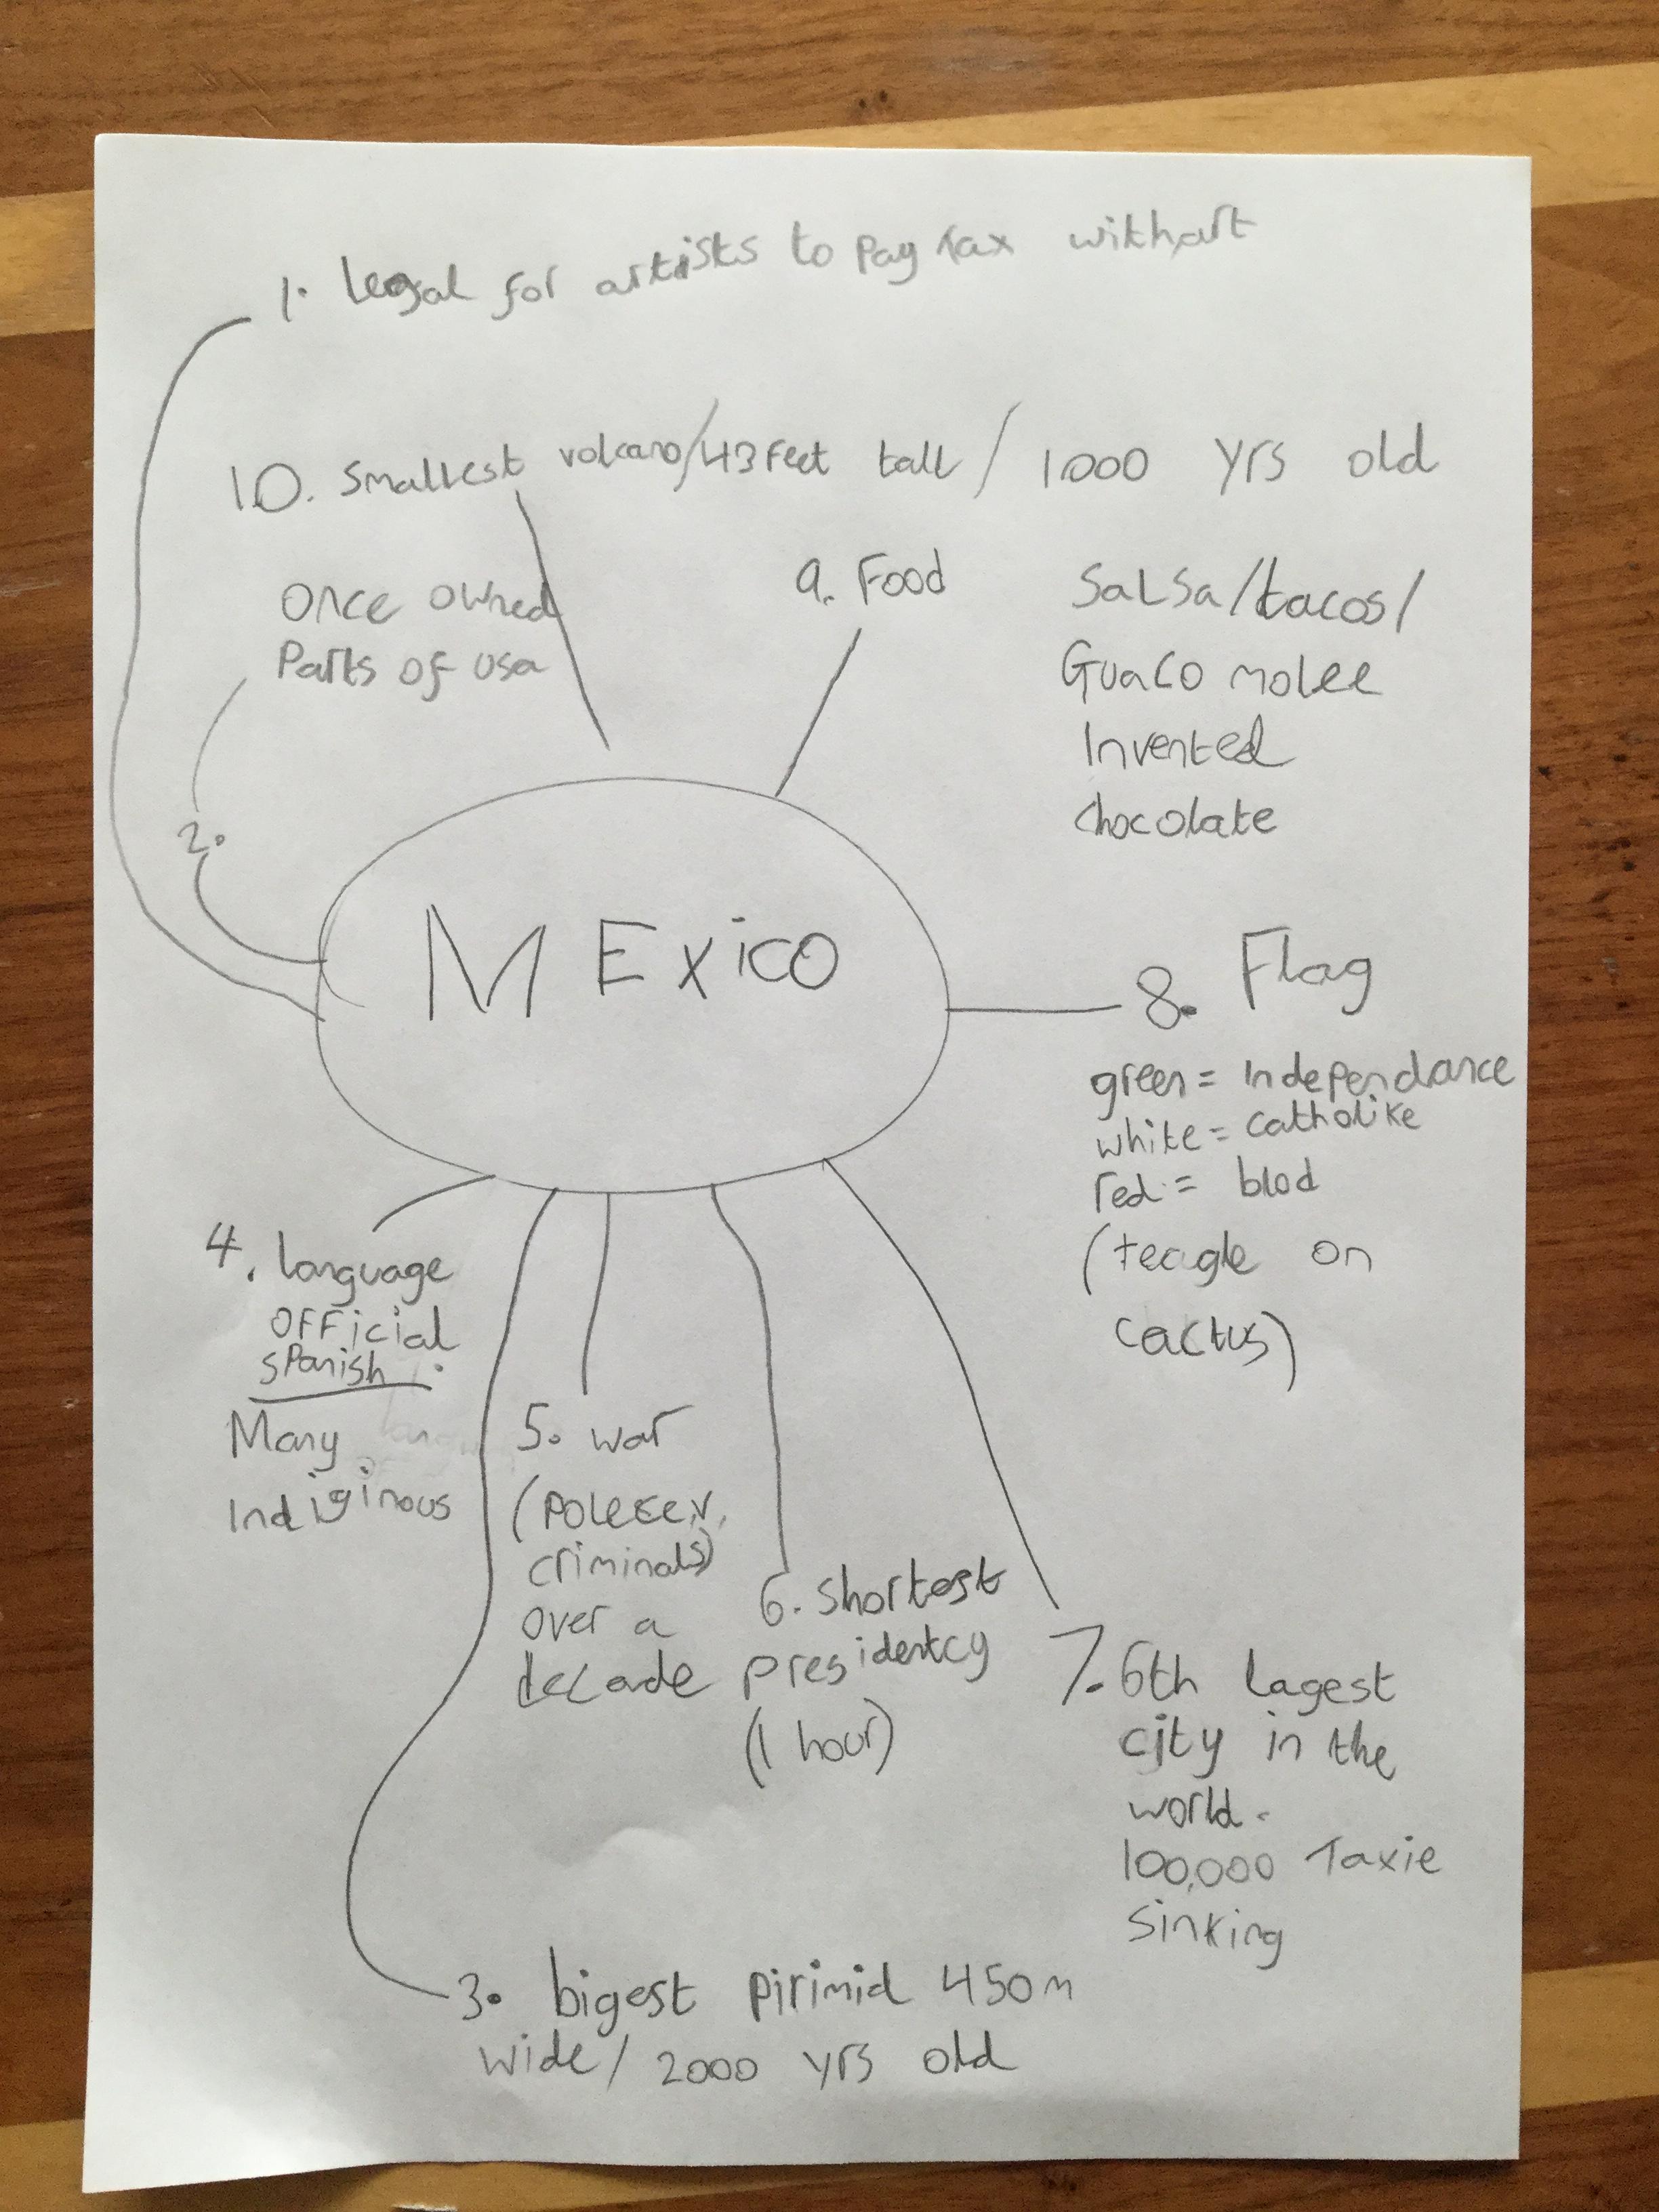 1. Legal for artists to pay tax with art
10. Smallest volcano/43 feet tall / 1000 yrs old
Once owned
Parts of usa
2.
9. Food
Salsa/tacos/
Guaco molee
Invented
chocolate
MExico
8. Flag
green = Independance
white = catholike
red = blod
(teagle on
cactus)
4. language
official
spanish.
Many
Indiginous
5. war
criminals)
over a
decade
6. shortest
presidentcy
(1 hour)
7. 6th lagest
city in the
world.
100,000 Taxie
sinking
3. bigest pirimid 450m
wide/ 2000 yrs old